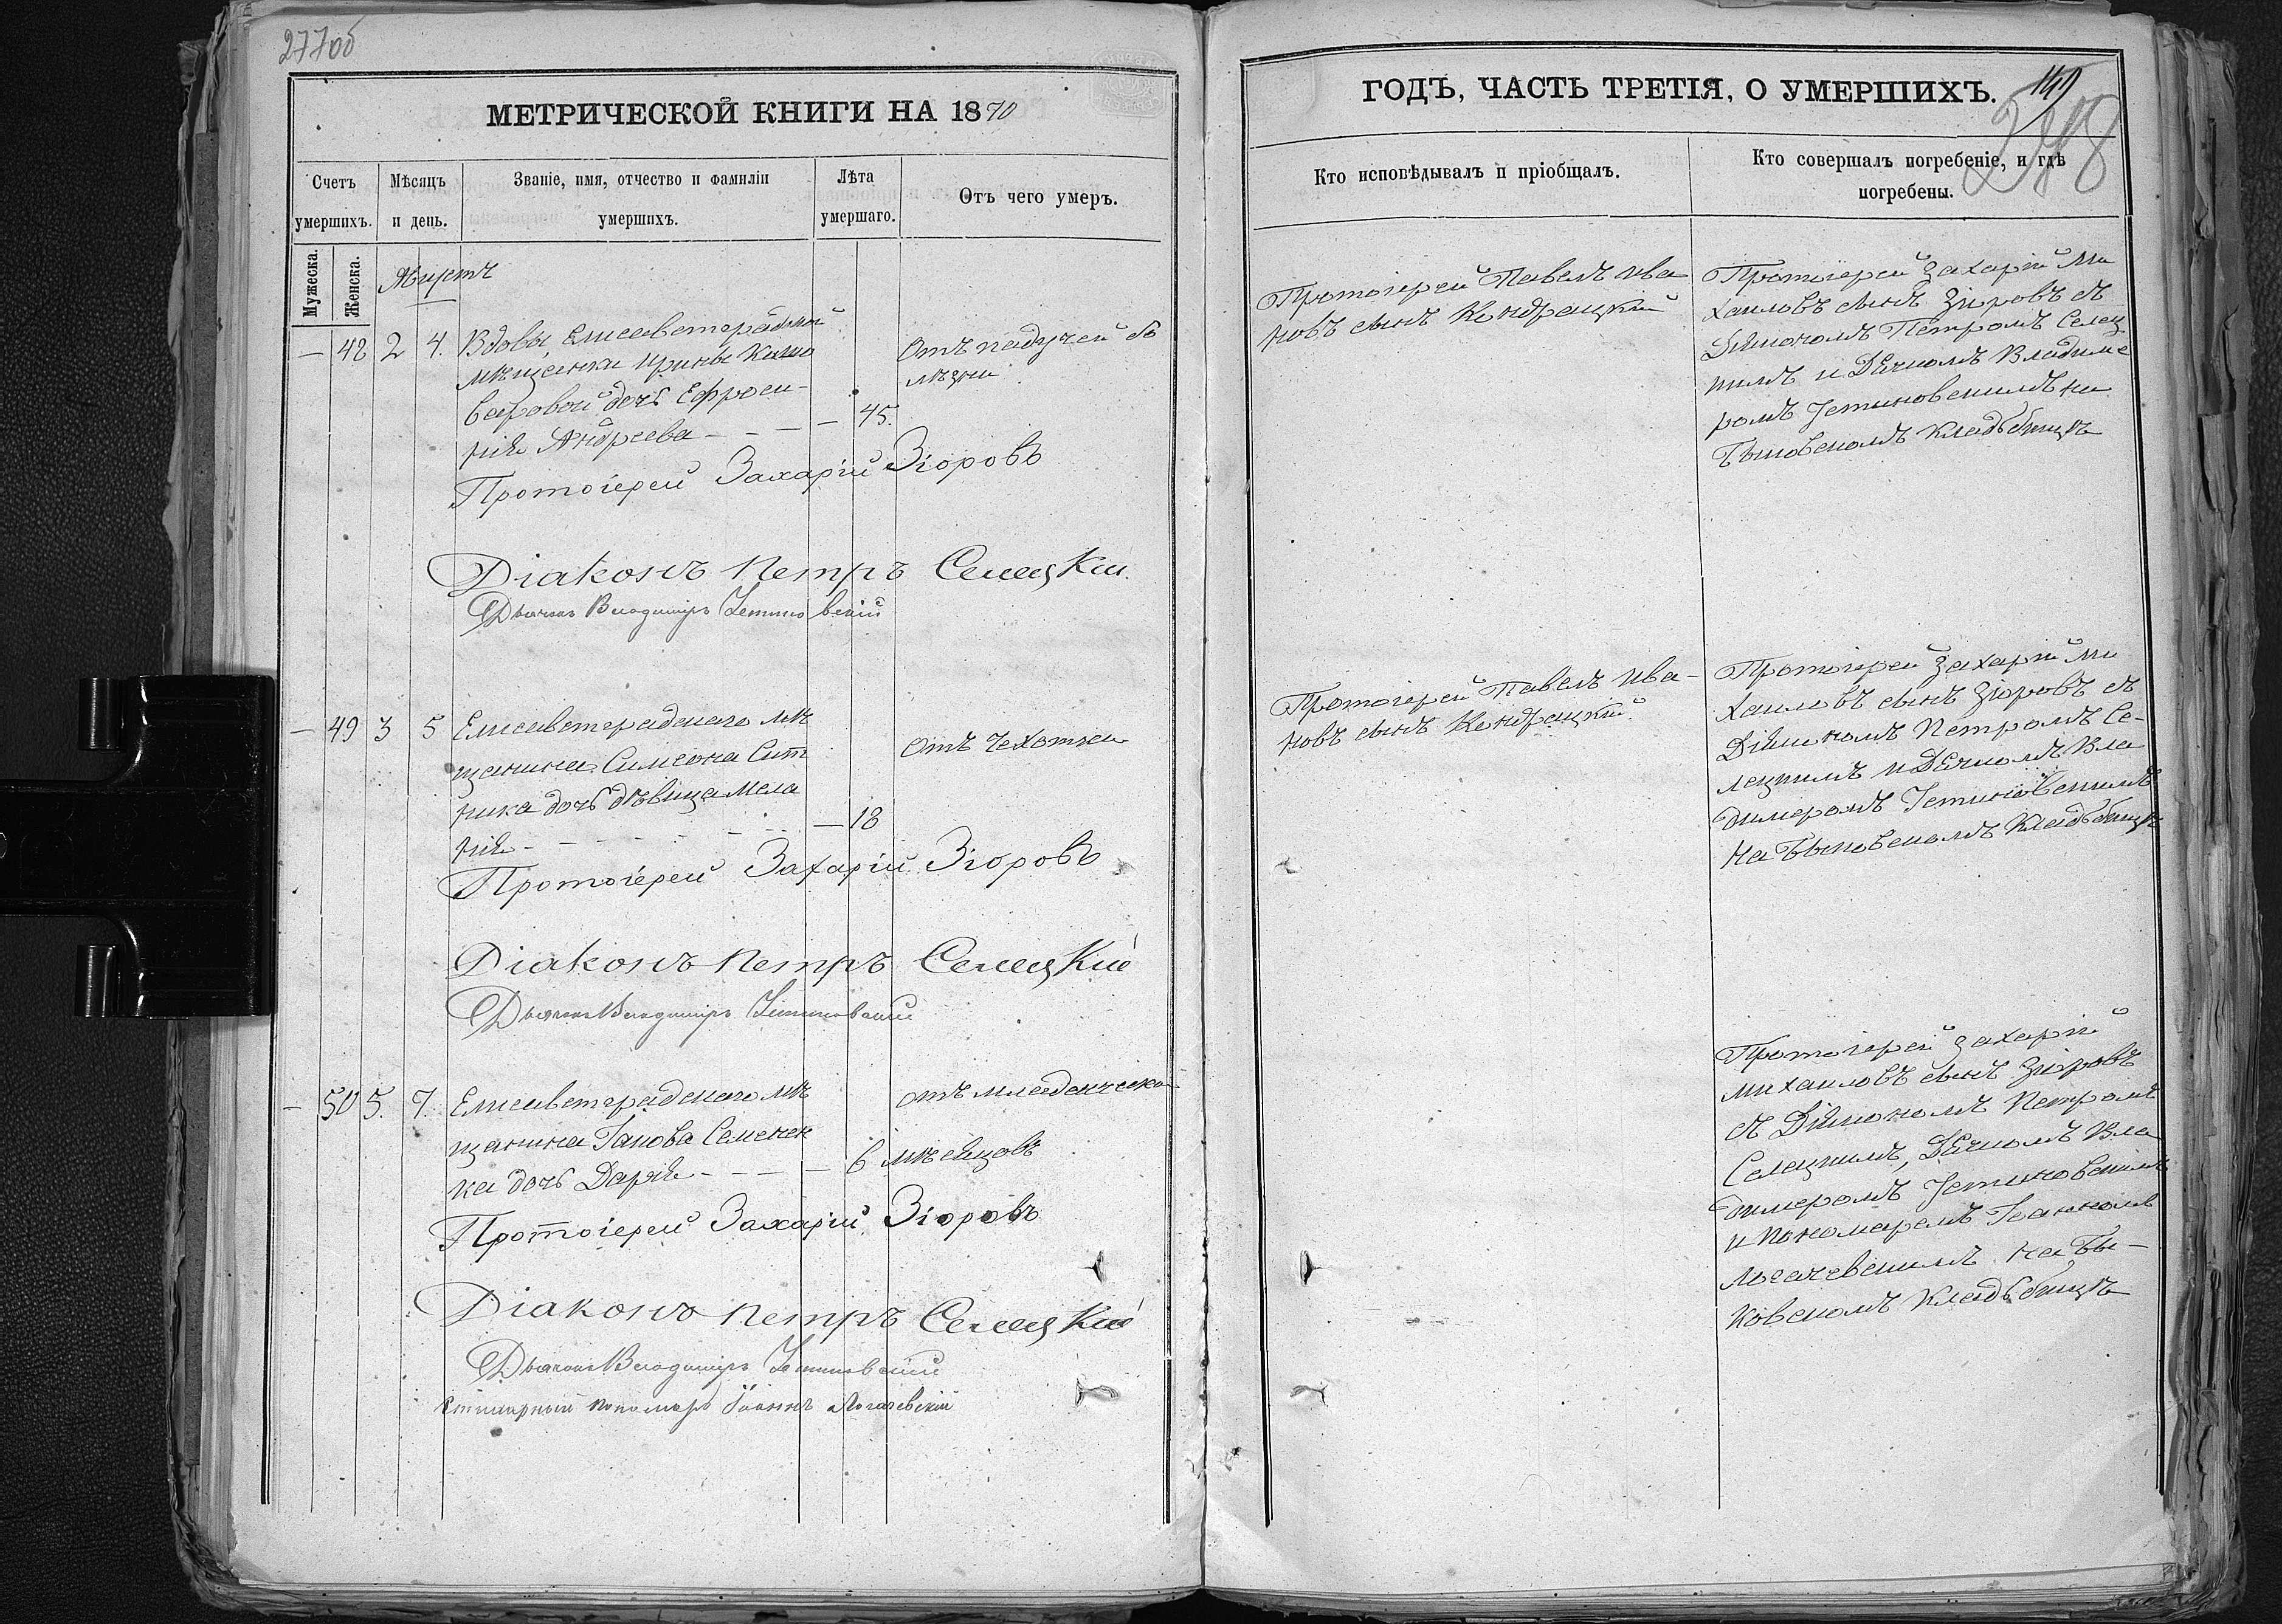 277об
МЕТРИЧЕСКОЙ КНИГИ НА 1870
Счетъ умершихъ.
Мѣсяцъ и день.
Званіе, имя, отчество и фамиліи умершихъ.
Лѣта умершаго.
Отъ чего умеръ.
Мужеска.
Женска.
Августъ
— 48 2 4. Вдовы Елисаветградской
мѣщанки Ирины
дочь Ефроси-
нія Андреева — — — — 45.
Отъ падучей бо
лѣзни
Протоіерей Захарій Зіоровъ
Діаконъ Петръ Селецкій.
Дьячокъ Владиміръ Устиновскій
— 49 3 5 Елисаветградскаго мѣ
щанина Симеона Сит
ника дочь дѣвица Мела
нія — — — — — — 18
отъ чехотки
Протоіерей Захарій Зіоровъ
Діаконъ Петръ Селецкій
Дьячокъ Владиміръ Устиновскій
— 50 5. 7. Елисаветградскаго мѣ
щанина Іакова Семенен
ка дочь Дарія — — — — 6 мѣсяцовъ
отъ младенческа
Протоіерей Захарій Зіоровъ
Діаконъ Петръ Селецкій
Дьячокъ Владиміръ Устиновскій
пономарь Іоаннъ Логачевскій
ГОДЪ, ЧАСТЬ ТРЕТІЯ, О УМЕРШИХЪ.
Кто исповѣдывалъ и пріобщалъ.
Кто совершалъ погребеніе, и гдѣ
погребены.
Протоіерей Павелъ Ива
новъ сынъ Кондрацкій
Протоіерей Захарій Ми
хаиловъ сынъ Зіоровъ съ
Діякономъ Петромъ Селец
кимъ и Дячкомъ Владиме
ромъ Устиновскимъ на
Быковскомъ Кладббищѣ
Протоіерей Павелъ Ива-
новъ сынъ Кондрацкій.
Протоіерей Захарій Ми
хаиловъ сынъ Зіоровъ съ
Діякономъ Петромъ Се-
лецкимъ и Дячкомъ Вла
димеромъ Устиновскимъ
на Быковскомъ Кладббищѣ
Протоіерей Захарій
Михаиловъ сынъ Зіоровъ
съ Діякономъ Петромъ
Селецкимъ, Дячкомъ Вла
димеромъ Устиновскимъ
и Пономаремъ Іоанномъ
Логачевскимъ на Бы-
ковскомъ Кладббищѣ